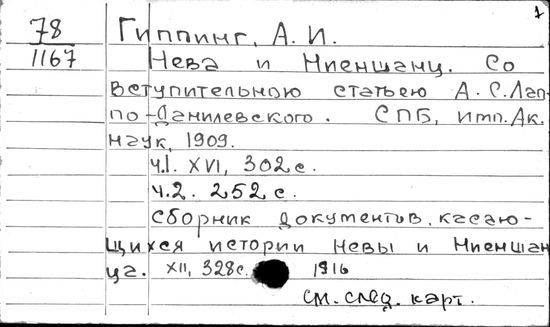 1
78 Гиппинг, А. И.
1167 Нева и Ниеншанц. Со
вступительною статьею А. С. Лап-
по-Данилевского. СПБ, имп. Ак.
наук, 1909.
ч.1. XVI, 302 с.
ч.2. 252 с.
Сборник документов, касаю-
щихся истории Невы и Ниеншан
ца. XII, 328 с. 1916
см. след. карт.